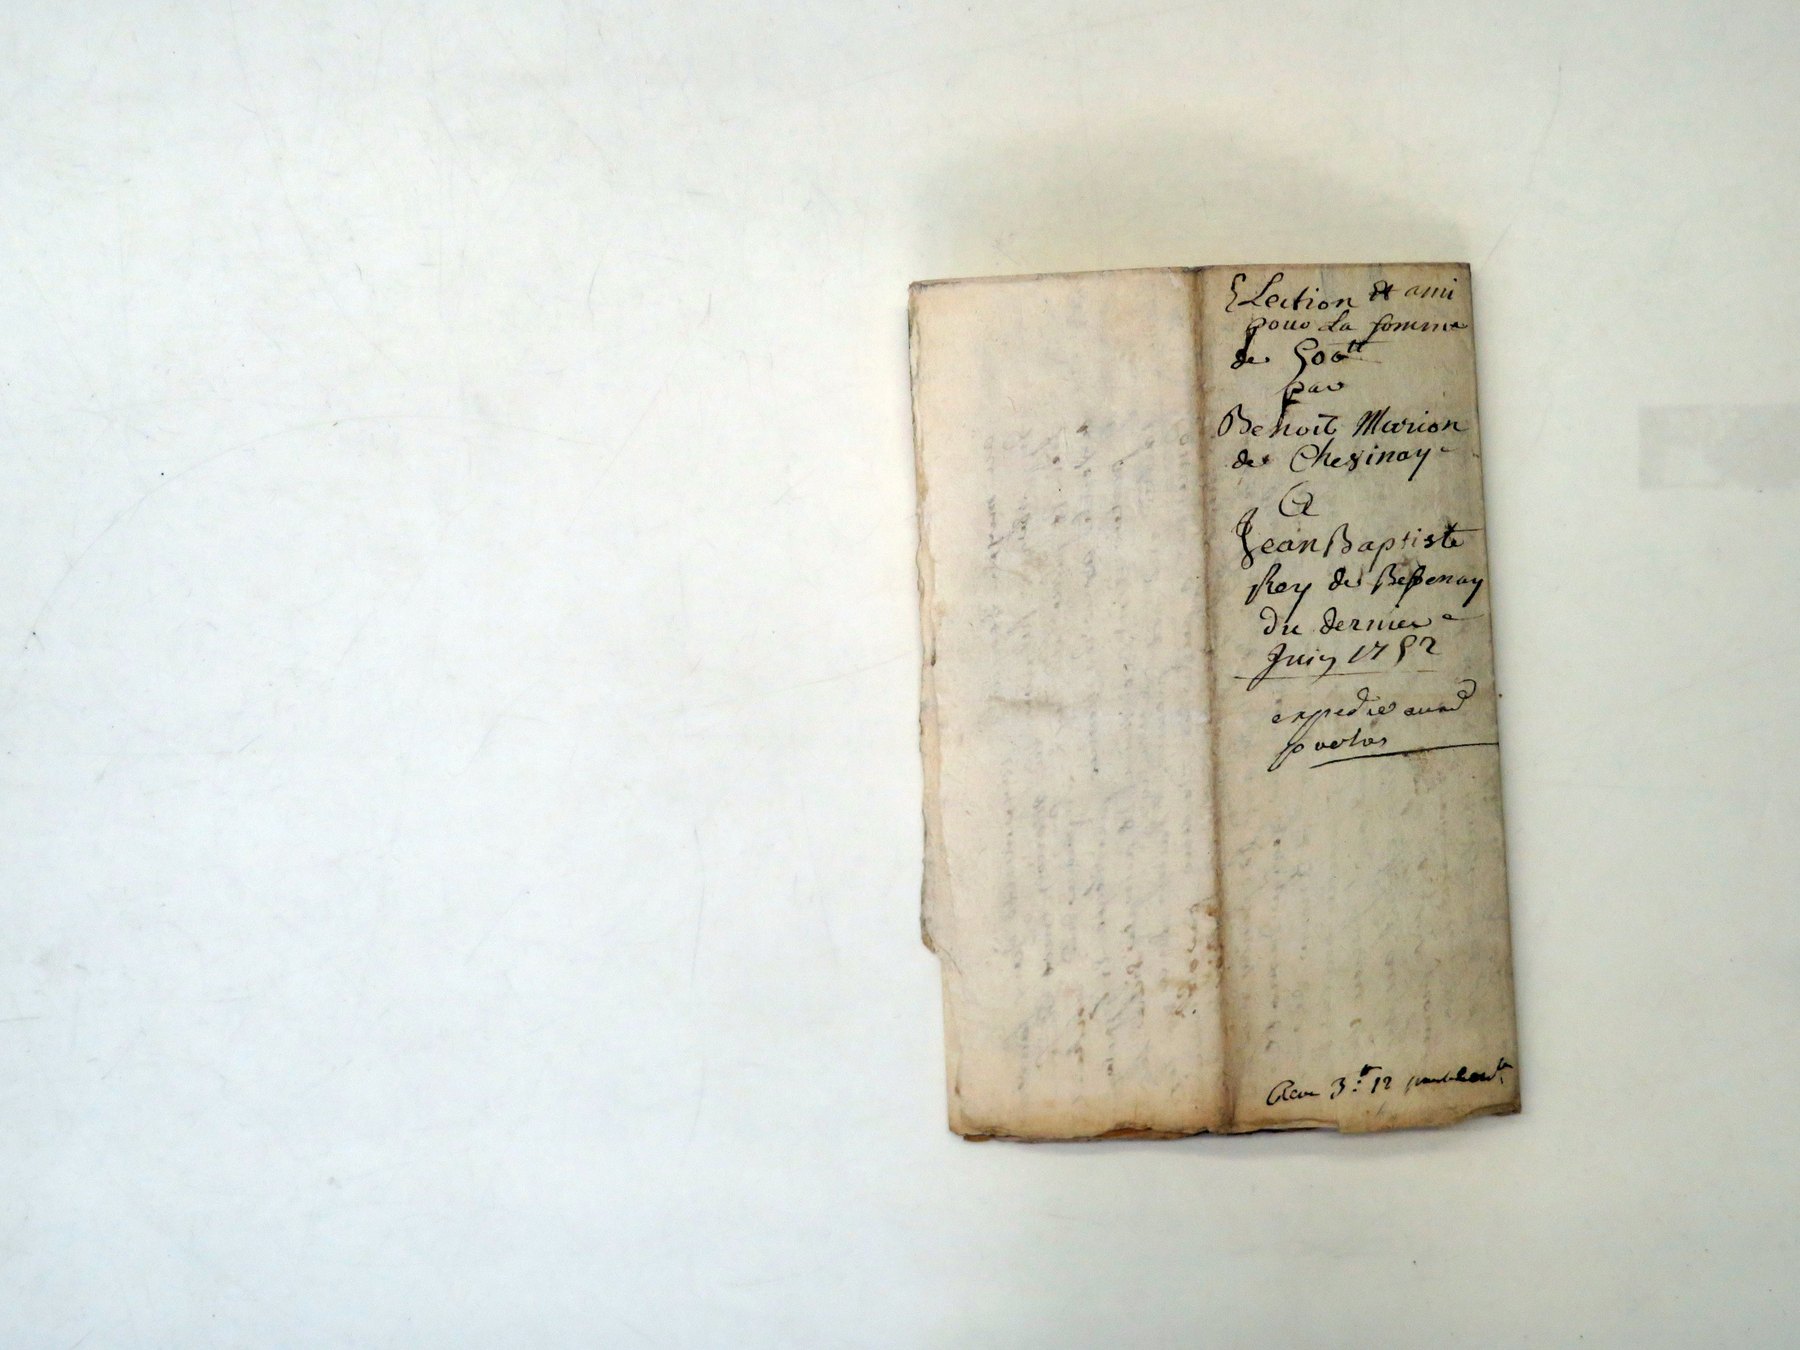 Election et ami
pour La somme
de 500tt
par
Benoit Marion
de Chesinay
a
Jean Baptiste
Rey de Bessenay
du dernier
Juin 1752
expedie aux d
parties
3tt 12